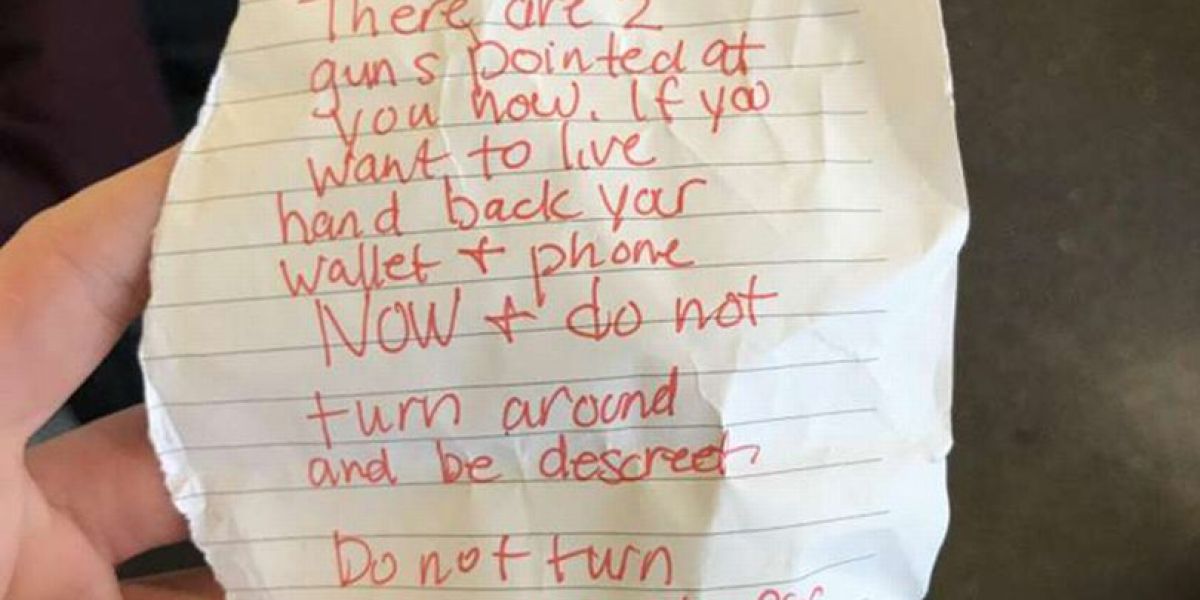 There are 2
guns pointed at
you now. If you
want to live
hand back your
wallet + phone
NOW + do not
turn around
and be descreet
Do not turn